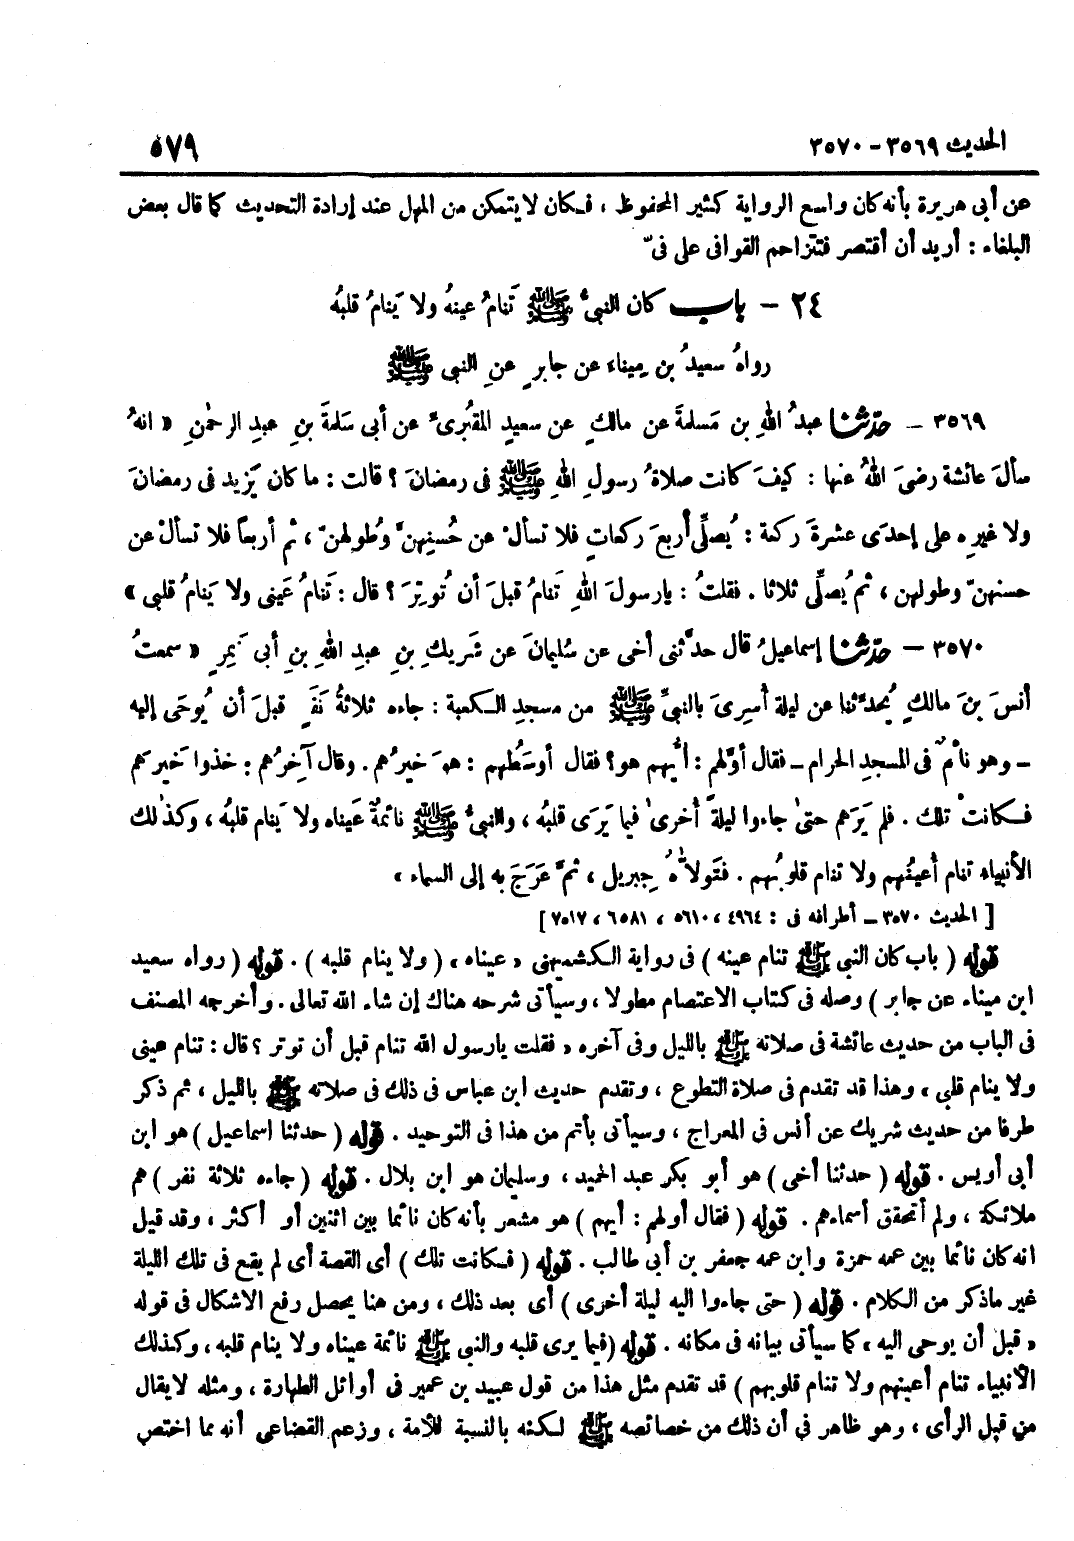 الحديث ٣٥٦٩ - ٣٥٧٠
٥٧٩
عن أبى هريرة بأنه كان واسع الرواية كثير المحفوظ ، فكان لا يتمكن من المهل عند إرادة التحديث كما قال بعض
البلغاء : أريد أن أقتصر فتتزاحم القوافى على فىّ
٢٤ - باب كان النبىُّ ﷺ تَنامُ عينهُ ولا يَنامُ قلبهُ
رواهُ سعيدُ بن مِيناء عن جابرٍ عنِ النبى ﷺ
٣٥٦٩ - حدّثنا عبدُ اللهِ بن مَسلمةَ عن مالكٍ عن سعيدٍ المقبُرىِّ عن أبى سَلمةَ بنِ عبدِ الرحمٰنِ « انهُ
سألَ عائشة رضىَ اللهُ عنها : كيفَ كانت صلاةُ رسولِ اللهِ ﷺ فى رمضانَ ؟ قالت : ما كان يَزيد فى رمضانَ
ولا غيرِه على إحدَى عشرةَ ركعة : يُصلِّى أربعَ ركعاتٍ فلا تسألْ عن حُسنِهنَّ وُطولهنّ ، ثم أربعاً فلا تسألْ عن
حسنهنّ وطولهن ، ثم يُصلِّى ثلاثا . فقلتُ : يارسولَ اللهِ تَنامُ قبلَ أن تُوتِرَ ؟ قال : تَنامُ عَينى ولا يَنامُ قلبى »
٣٥٧٠ - حدّثنا إسماعيلُ قال حدَّثنى أخى عن سُليمانَ عن شَريكِ بنِ عبدِ اللهِ بنِ أبى نَمِرٍ « سمعتُ
أنسَ بنَ مالكٍ يُحدِّثنا عن ليلة أُسرِىَ بالنبىِّ ﷺ من مسجدِ الكعبة : جاءه ثلاثةُ نَفَرٍ قبلَ أن يُوحَى إليه
- وهو نائمٌ فى المسجدِ الحرام - فقال أوّلهم : أيُّهم هو؟ فقال أوسَطُهم : هوَ خيرُهم . وقال آخِرُهم : خذوا خَيرهم
فكانتْ تلك . فلم يَرَهم حتىٰ جاءوا ليلةً أخرىٰ فيما يَرَى قلبهُ ، والنبىُّ ﷺ نائمةٌ عَيناه ولا يَنام قلبهُ ، وكذٰلك
الأنبياء تنام أعينُهم ولا تنام قلوبُهم . فتَولاَّهُ جِبريل ، ثمَّ عَرَجَ به إلى السماء »
[ الحديث ٣٥٧٠ - أطرافه فى : ٤٩٦٤ ، ٥٦١٠ ، ٦٥٨١ ، ٧٥١٧ ]
قوله ( باب كان النبى ﷺ تنام عينه ) فى رواية الكشميهنى « عيناه » ( ولا ينام قلبه ) . قوله ( رواه سعيد
ابن ميناء عن جابر ) وصله فى كتاب الاعتصام مطولا ، وسيأتى شرحه هناك إن شاء الله تعالى . وأخرجه المصنف
فى الباب من حديث عائشة فى صلاته ﷺ بالليل وفى آخره « فقلت يارسول الله تنام قبل أن توتر ؟ قال : تنام عينى
ولا ينام قلبى » وهذا قد تقدم فى صلاة التطوع ، وتقدم حديث ابن عباس فى ذلك فى صلاته ﷺ بالليل ، ثم ذكر
طرفا من حديث شريك عن أنس فى المعراج ، وسيأتى بأتم من هذا فى التوحيد . قوله ( حدثنا اسماعيل ) هو ابن
أبى أويس . قوله ( حدثنا أخى ) هو أبو بكر عبد الحميد ، وسليمان هو ابن بلال . قوله ( جاءه ثلاثة نفر ) هم
ملائكة ، ولم أتحقق أسماءهم . قوله ( فقال أولهم : أيهم ) هو مشعر بأنه كان نائما بين اثنين أو أكثر ، وقد قيل
انه كان نائما بين عمه حمزة وابن عمه جعفر بن أبى طالب . قوله ( فكانت تلك ) أى القصة أى لم يقع فى تلك الليلة
غير ماذكر من الكلام . قوله ( حتى جاءوا اليه ليلة أخرى ) أى بعد ذلك ، ومن هنا يحصل رفع الاشكال فى قوله
« قبل أن يوحى اليه » كما سيأتى بيانه فى مكانه . قوله (فيما يرى قلبه والنبى ﷺ نائمة عيناه ولا ينام قلبه ، وكذلك
الأنبياء تنام أعينهم ولا تنام قلوبهم ) قد تقدم مثل هذا من قول عبيد بن عمير فى أوائل الطهارة ، ومثله لا يقال
من قبل الرأى ، وهو ظاهر فى أن ذلك من خصائصه ﷺ لكنه بالنسبة للأمة ، وزعم القضاعى أنه مما اختص